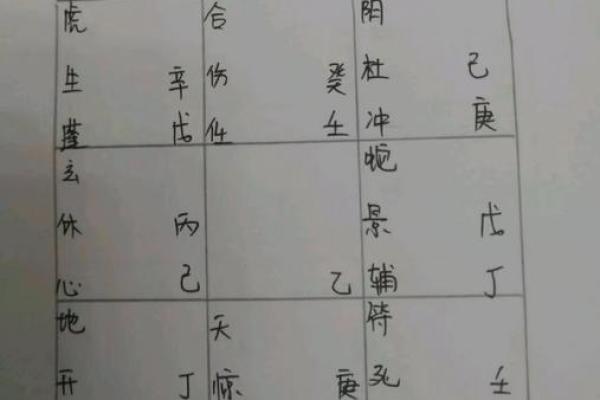 虎 合 阴
生 辛 伤 癸 杜 己
蓬 戊 任 壬 冲 庚
玄 蛇
休 丙 景 戊
心 己 乙 辅 丁
地 天 符
开 丁 惊 庚 死 壬